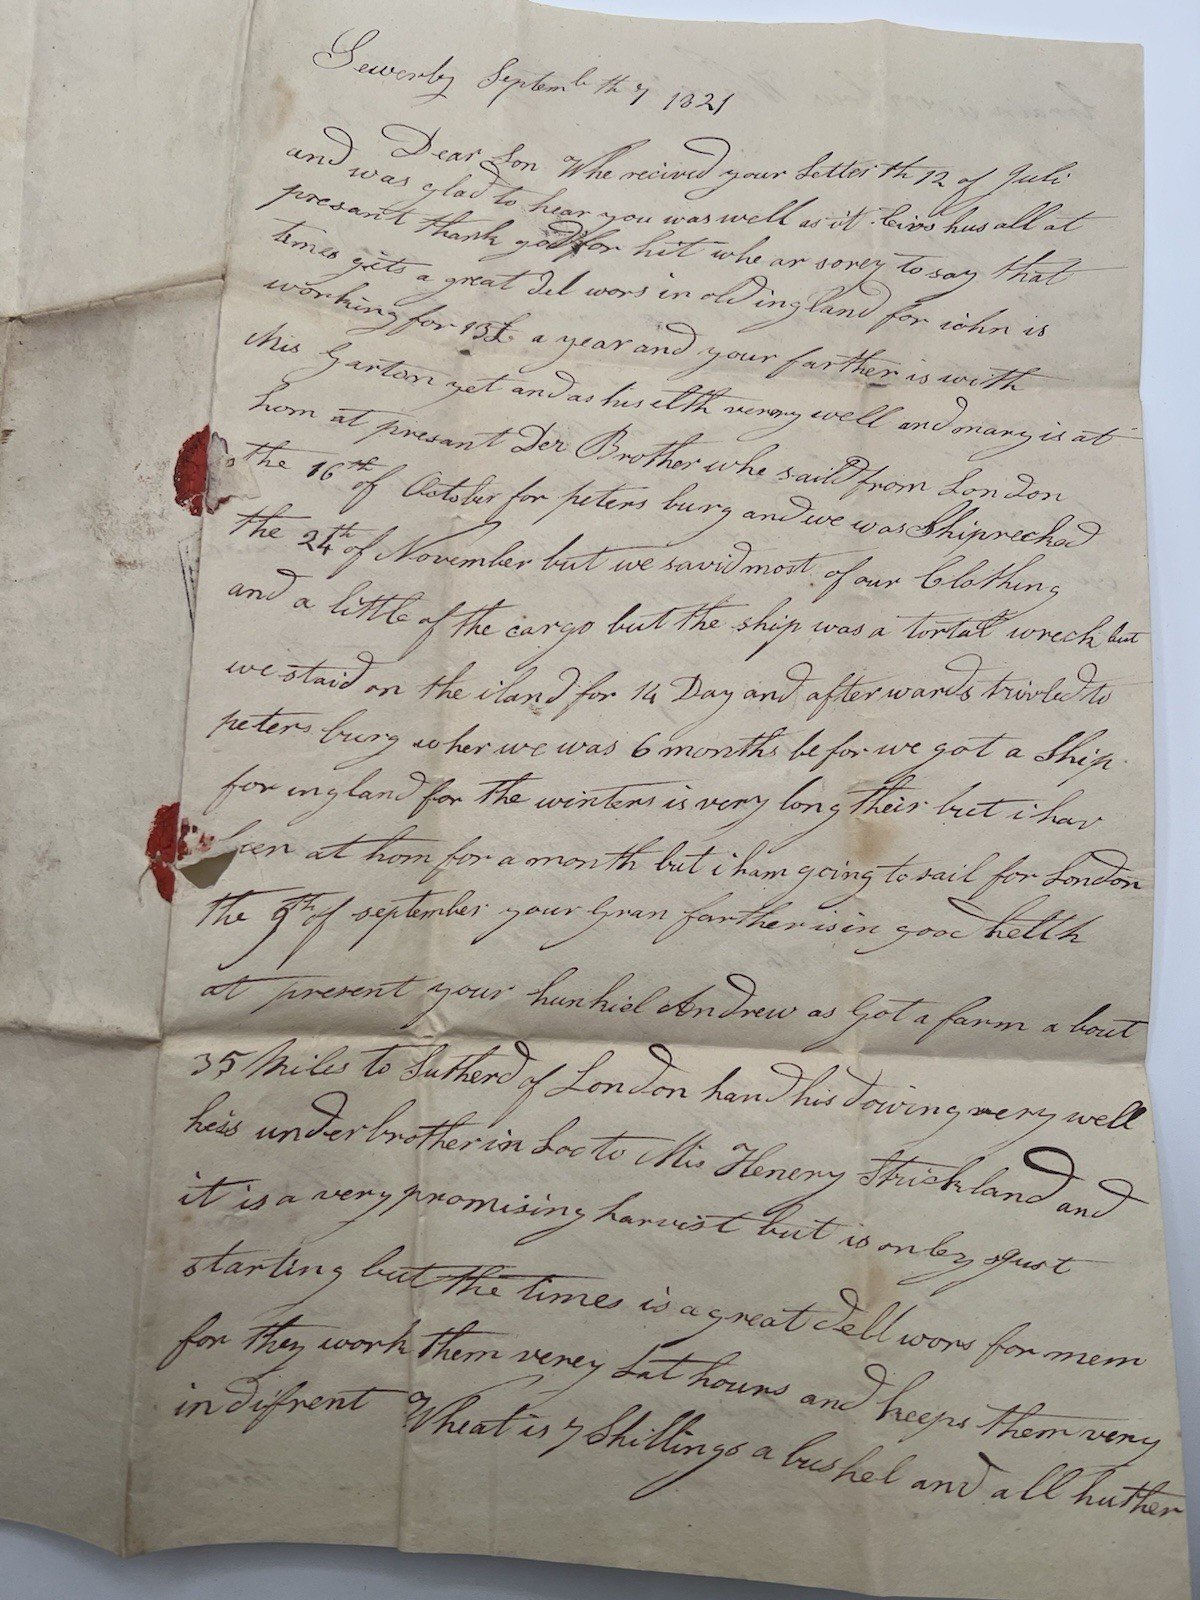 Sewerby Septemb th 7 1821
Dear Son Whe recived your Letter th 12 of Juli
and was glad to hear you was well as it livs hus all at
presant thank god for hit whe ar sorey to say that
times gits a great del wors in old ingland for iohn is
working for 15£ a year and your farther is with
Mis Garton yet and as his elth verey well and mary is at
hom at presant Der Brother whe saild from London
the 16th of October for peters burg and we was Shiprecked
the 24th of November but we savid most of our Clothing
and a little of the cargo but the ship was a tortal wreck but
we staid on the iland for 14 Day and afterwards trivled to
peters burg wher we was 6 months befor we got a Ship
for ingland for the winters is very long their but i hav
been at hom for a month but i ham going to sail for London
the 9th of september your Gran farther is in good helth
at present your hunkiel Andrew as Got a farm a bout
35 Miles to Sutherd of London hand his dowing very well
heis under brother in Loc to Mis Henery Strickland and
it is a very promising harvist but is onley gust
starting but the times is a great dell wors for mem
for they work them verey Lat hours and keeps them very
indifrent Wheat is 7 Shillings a bushel and all huther